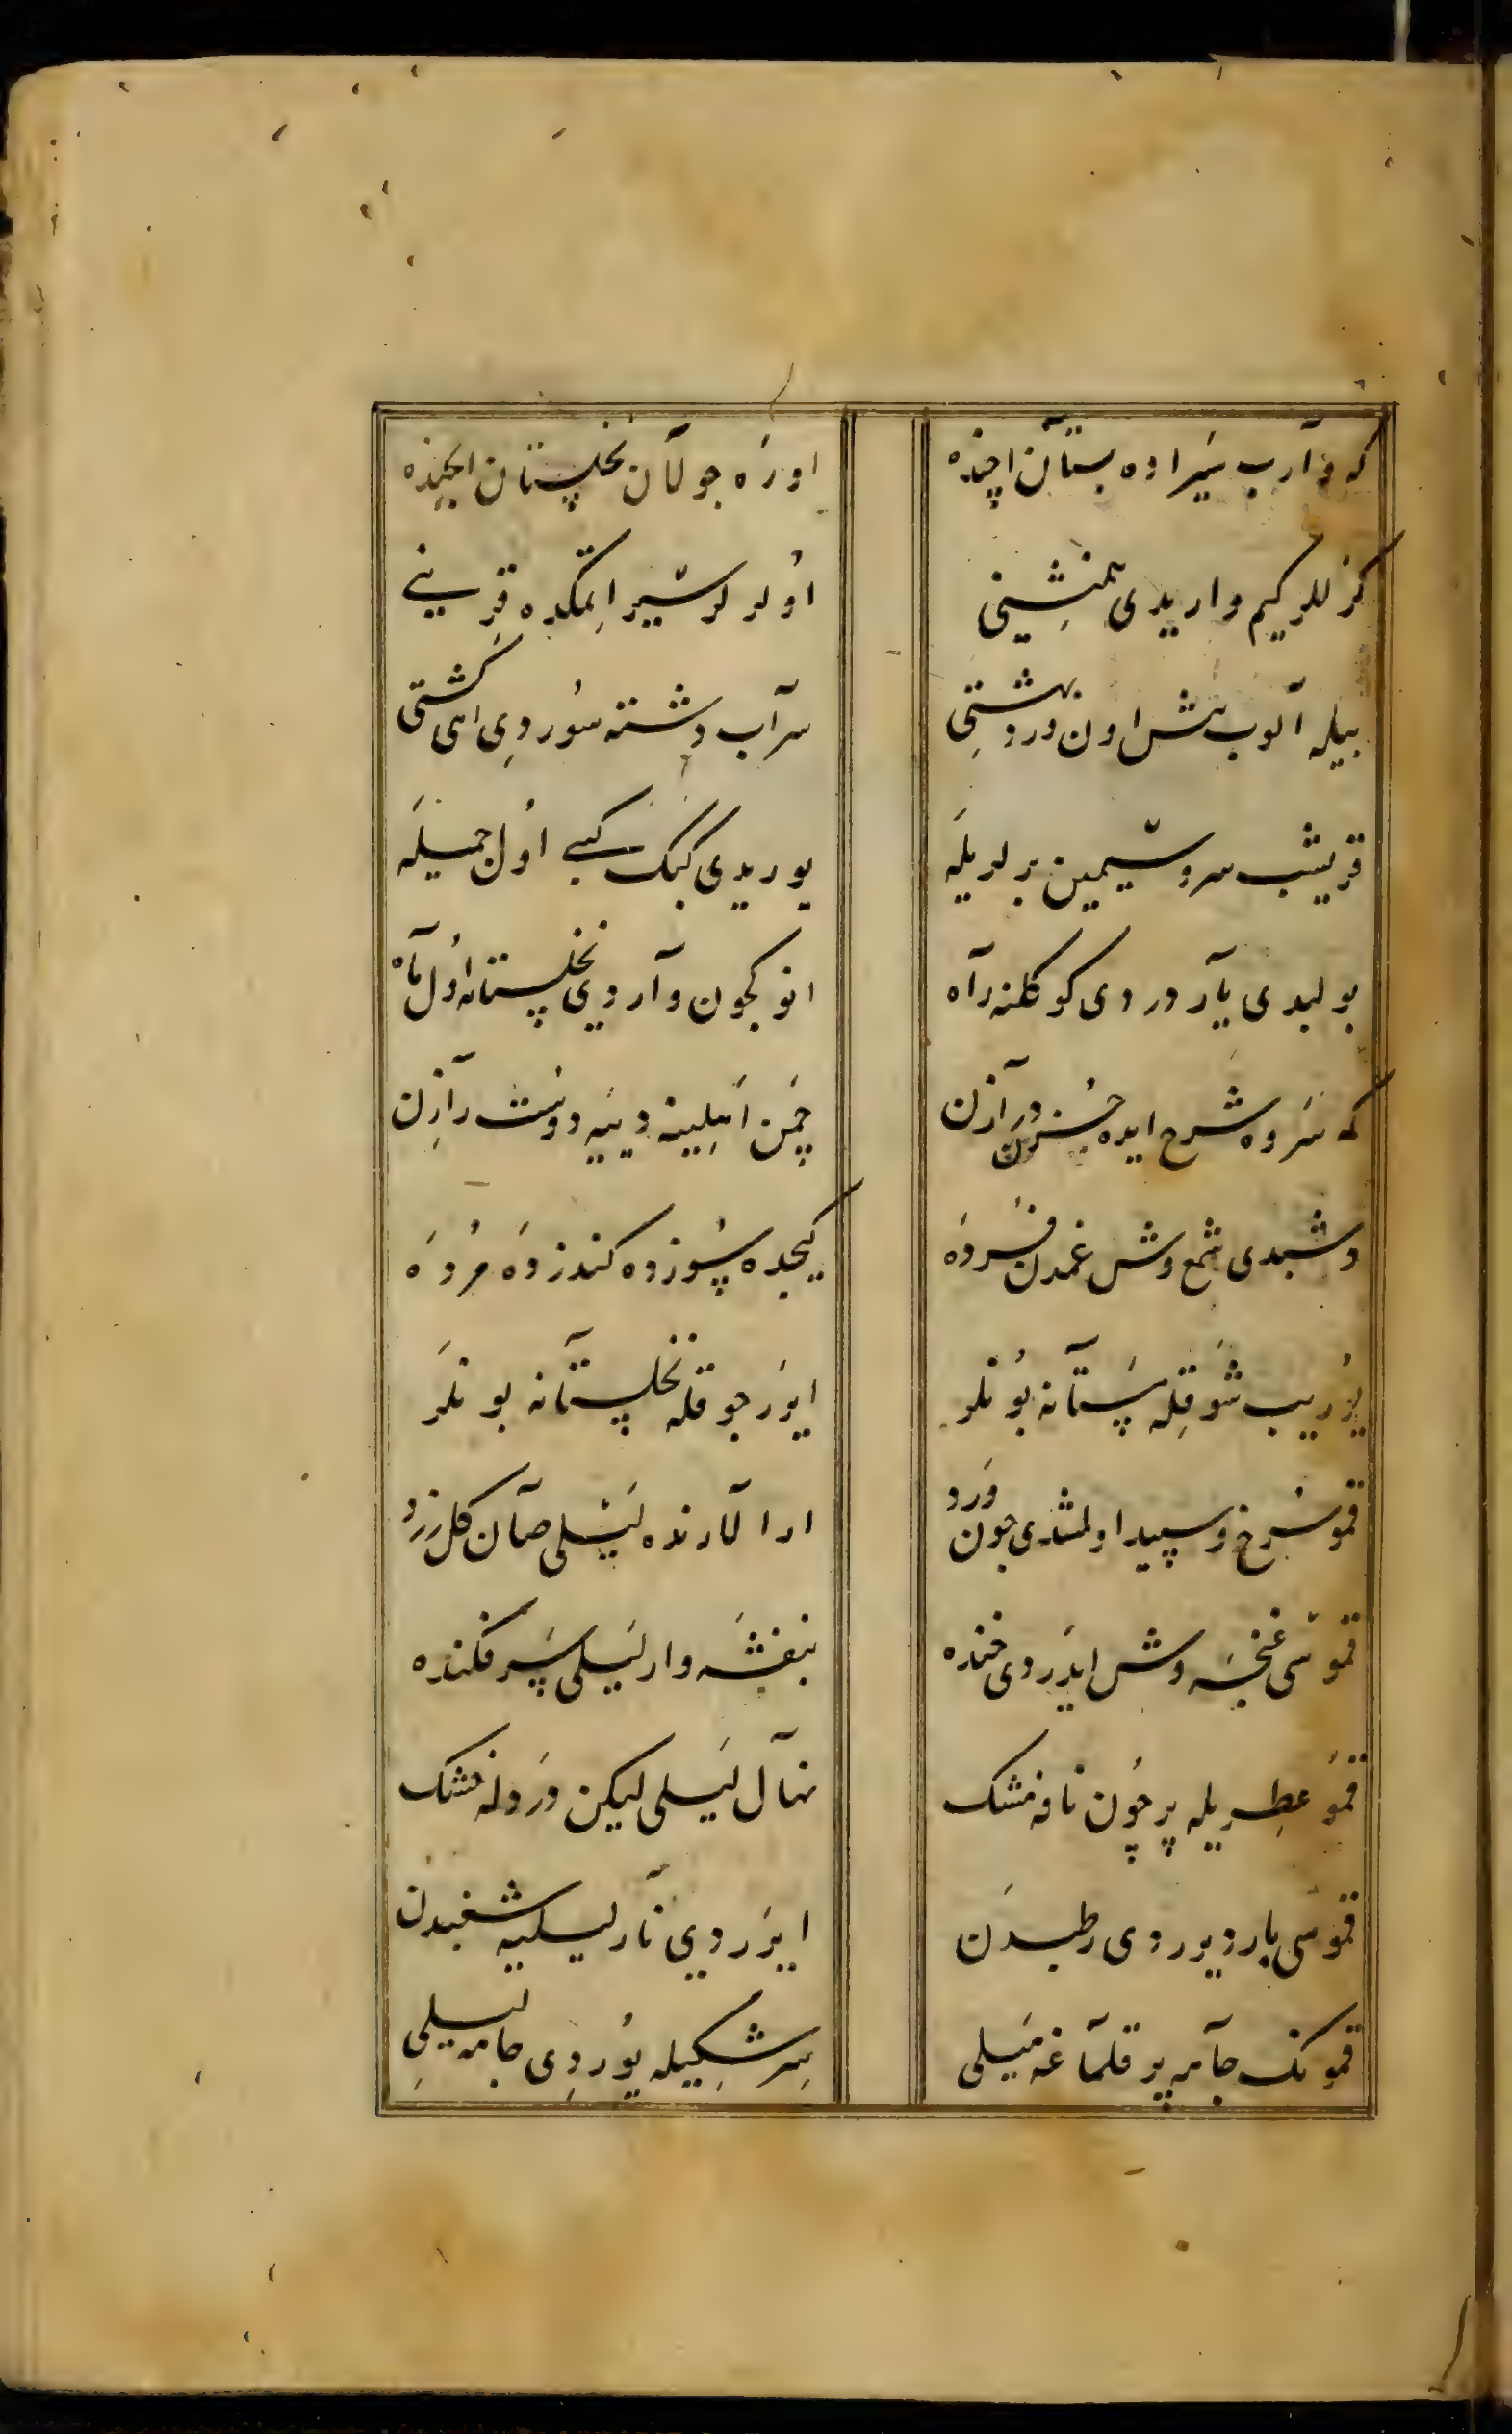 که وآرب سَیر اده بستآن اچنده
اورَه جولآن نخلستان ایچنده
کزللر کیم واریدی همنِشینی
اوُلر لر سَیر اِتمکده قرِینی
بیله آلوب بش اون حور بهشتی
سرآب دشته سُوردِی اهی کشتی
قریشب سرو سیمین بر لریلَه
یوریدی کبک کبی اوُل جمیلَه
بولیدی یآر دردی کوکلنه رآه
انوکچون وآردی نخلستانه اوُل مآه
که سَروه شرح ایده حُسنن درآزن
چَمن اَهلینه دییَه دوُست رازِن
دشبدی شمع وش غمدن فسُرده
کیجده سُوزده کندزده مُردَه
یوُریب شَوقِله مَستآنه بوُنلر
ایرَر جوقله نخلستآنه بونلَر
قمو سُرخ و سپید اولمشدی جون وَرد
ارا لآرنده لَیلی صآن کل زرد
قموسی غنجَه وش ایدَردی خنده
بنفشَه وار لَیلی سَر فکنده
قموُ عطِریله پر چوُن نافه مشک
نهآل لَیلی لیکن دَردله خشک
قموسَی بار ویرردی رطبدَن
ایرَردی نآر لیلیه شغبدن
قمونک جآمه پر قلمآغه مَیلی
سِرشکِیله یوُردِی جامه لیلیِ